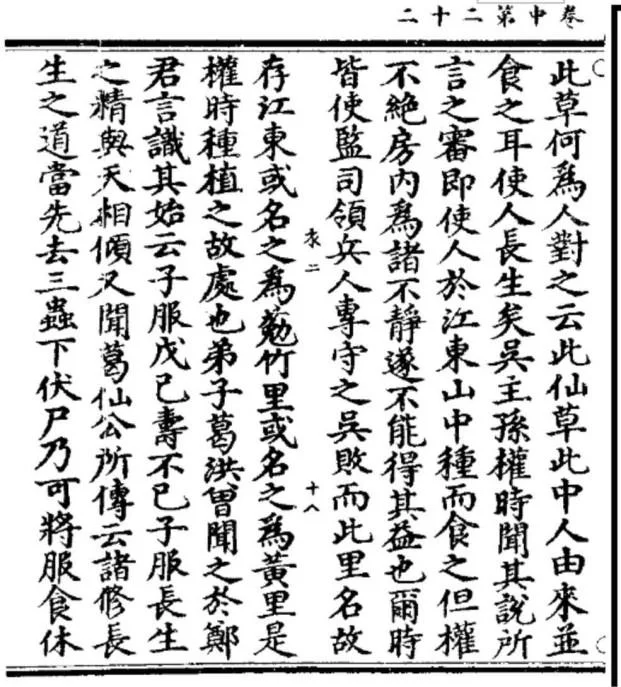 卷中第二十二
此草何爲人對之云此仙草此中人由來並
食之耳使人長生矣吳主孫權時聞其說所
言之審即使人於江東山中種而食之但權
不絕房內爲諸不靜遂不能得其益也爾時
皆使監司領兵人專守之吳敗而此里名故
二 十八
存江東或名之爲竹里或名之爲黃里是
權時種植之故處也弟子葛洪曾聞之於鄭
君言識其始云子服戊己壽不已子服長生
之精與天相傾又聞葛仙公所傳云諸修長
生之道當先去三蟲下伏尸乃可將服食休